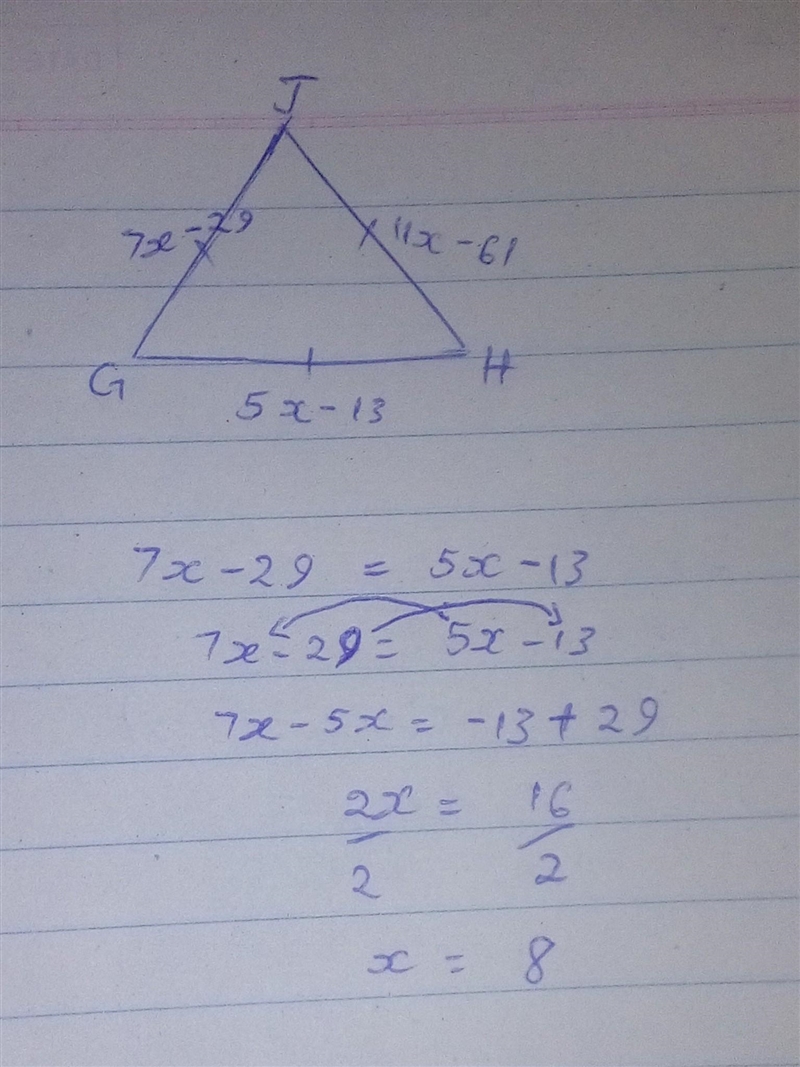 J
7x - 29
11x - 61
G
H
5x - 13
7x - 29 = 5x - 13
7x - 29 = 5x - 13
7x - 5x = -13 + 29
2x = 16
2 2
x = 8